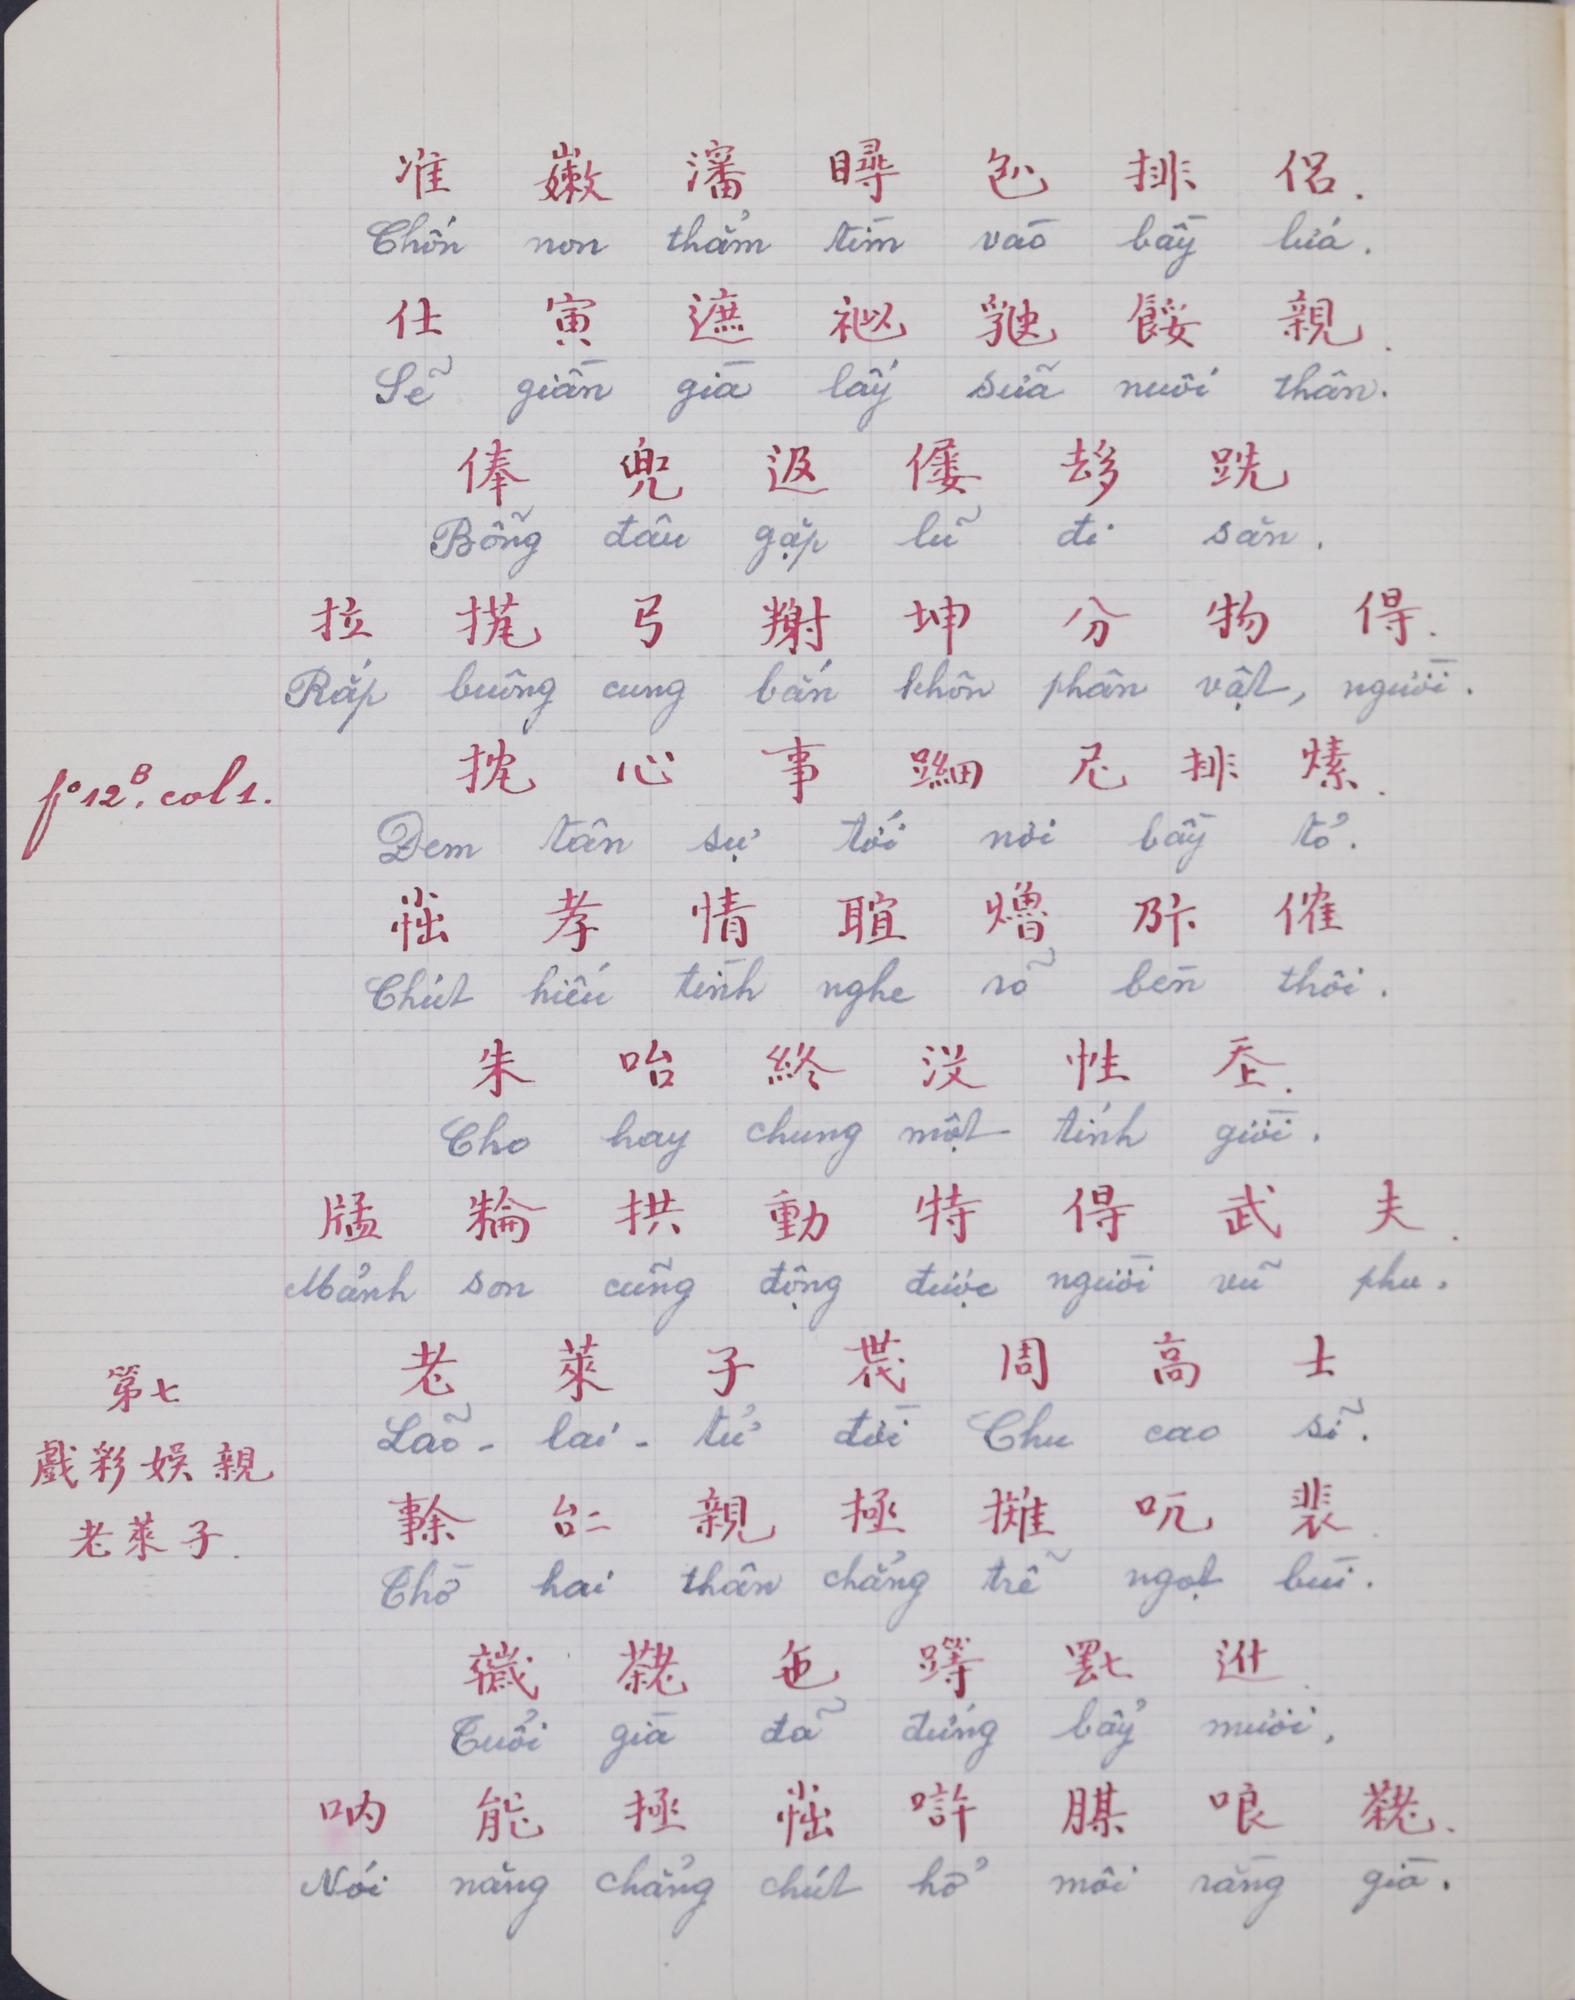 准 嫩 瀋 𥋴 𠓨 排 侶.
Chốn non thẳm tìm vào bầy lứá.
仕 寅 遮 𥙩 餒 親.
Sẽ giần già lấy sữa nuôi thân.
俸 兜 返 𠫾 𨁪
Bỗng đâu gặp lũ đi săn.
拉 弓 坤 分 物 得.
Rắp buông cung bắn khôn phân vật, người.
f° 12 B. col 1.
心 事 細 尼 排 𤍊.
Đem tân sự tới nơi bầy tỏ.
孝 情 𦖑 𤑟 催
Chút hiếu tình nghe rõ bèn thôi.
朱 咍 終 没 性 𡗶.
Cho hay chung một tính giời.
𤗖 拱 動 特 得 武 夫.
Mảnh son cũng động được người vũ phu.
第七
戲彩娛親
老萊子.
老 萊 子 周 高 士
Lão - lai - tử đời Chu cao sĩ.
𠄩 親 拯 𠯪 裴.
Thờ hai thân chẳng trễ ngọt bùi.
𨒒
Tuổi già đã đứng bẩy mươi,
吶 能 拯 哴.
Nói năng chẳng chút hở môi rằng già.